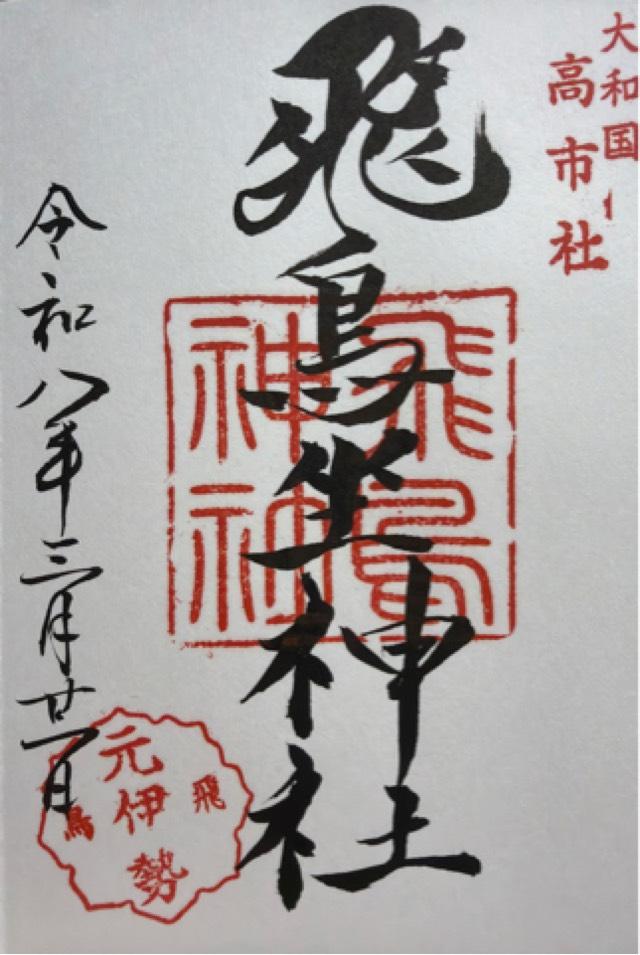 大和国
高市社
飛鳥坐神社
飛鳥
令和八年三月廿一日
飛鳥
元伊勢